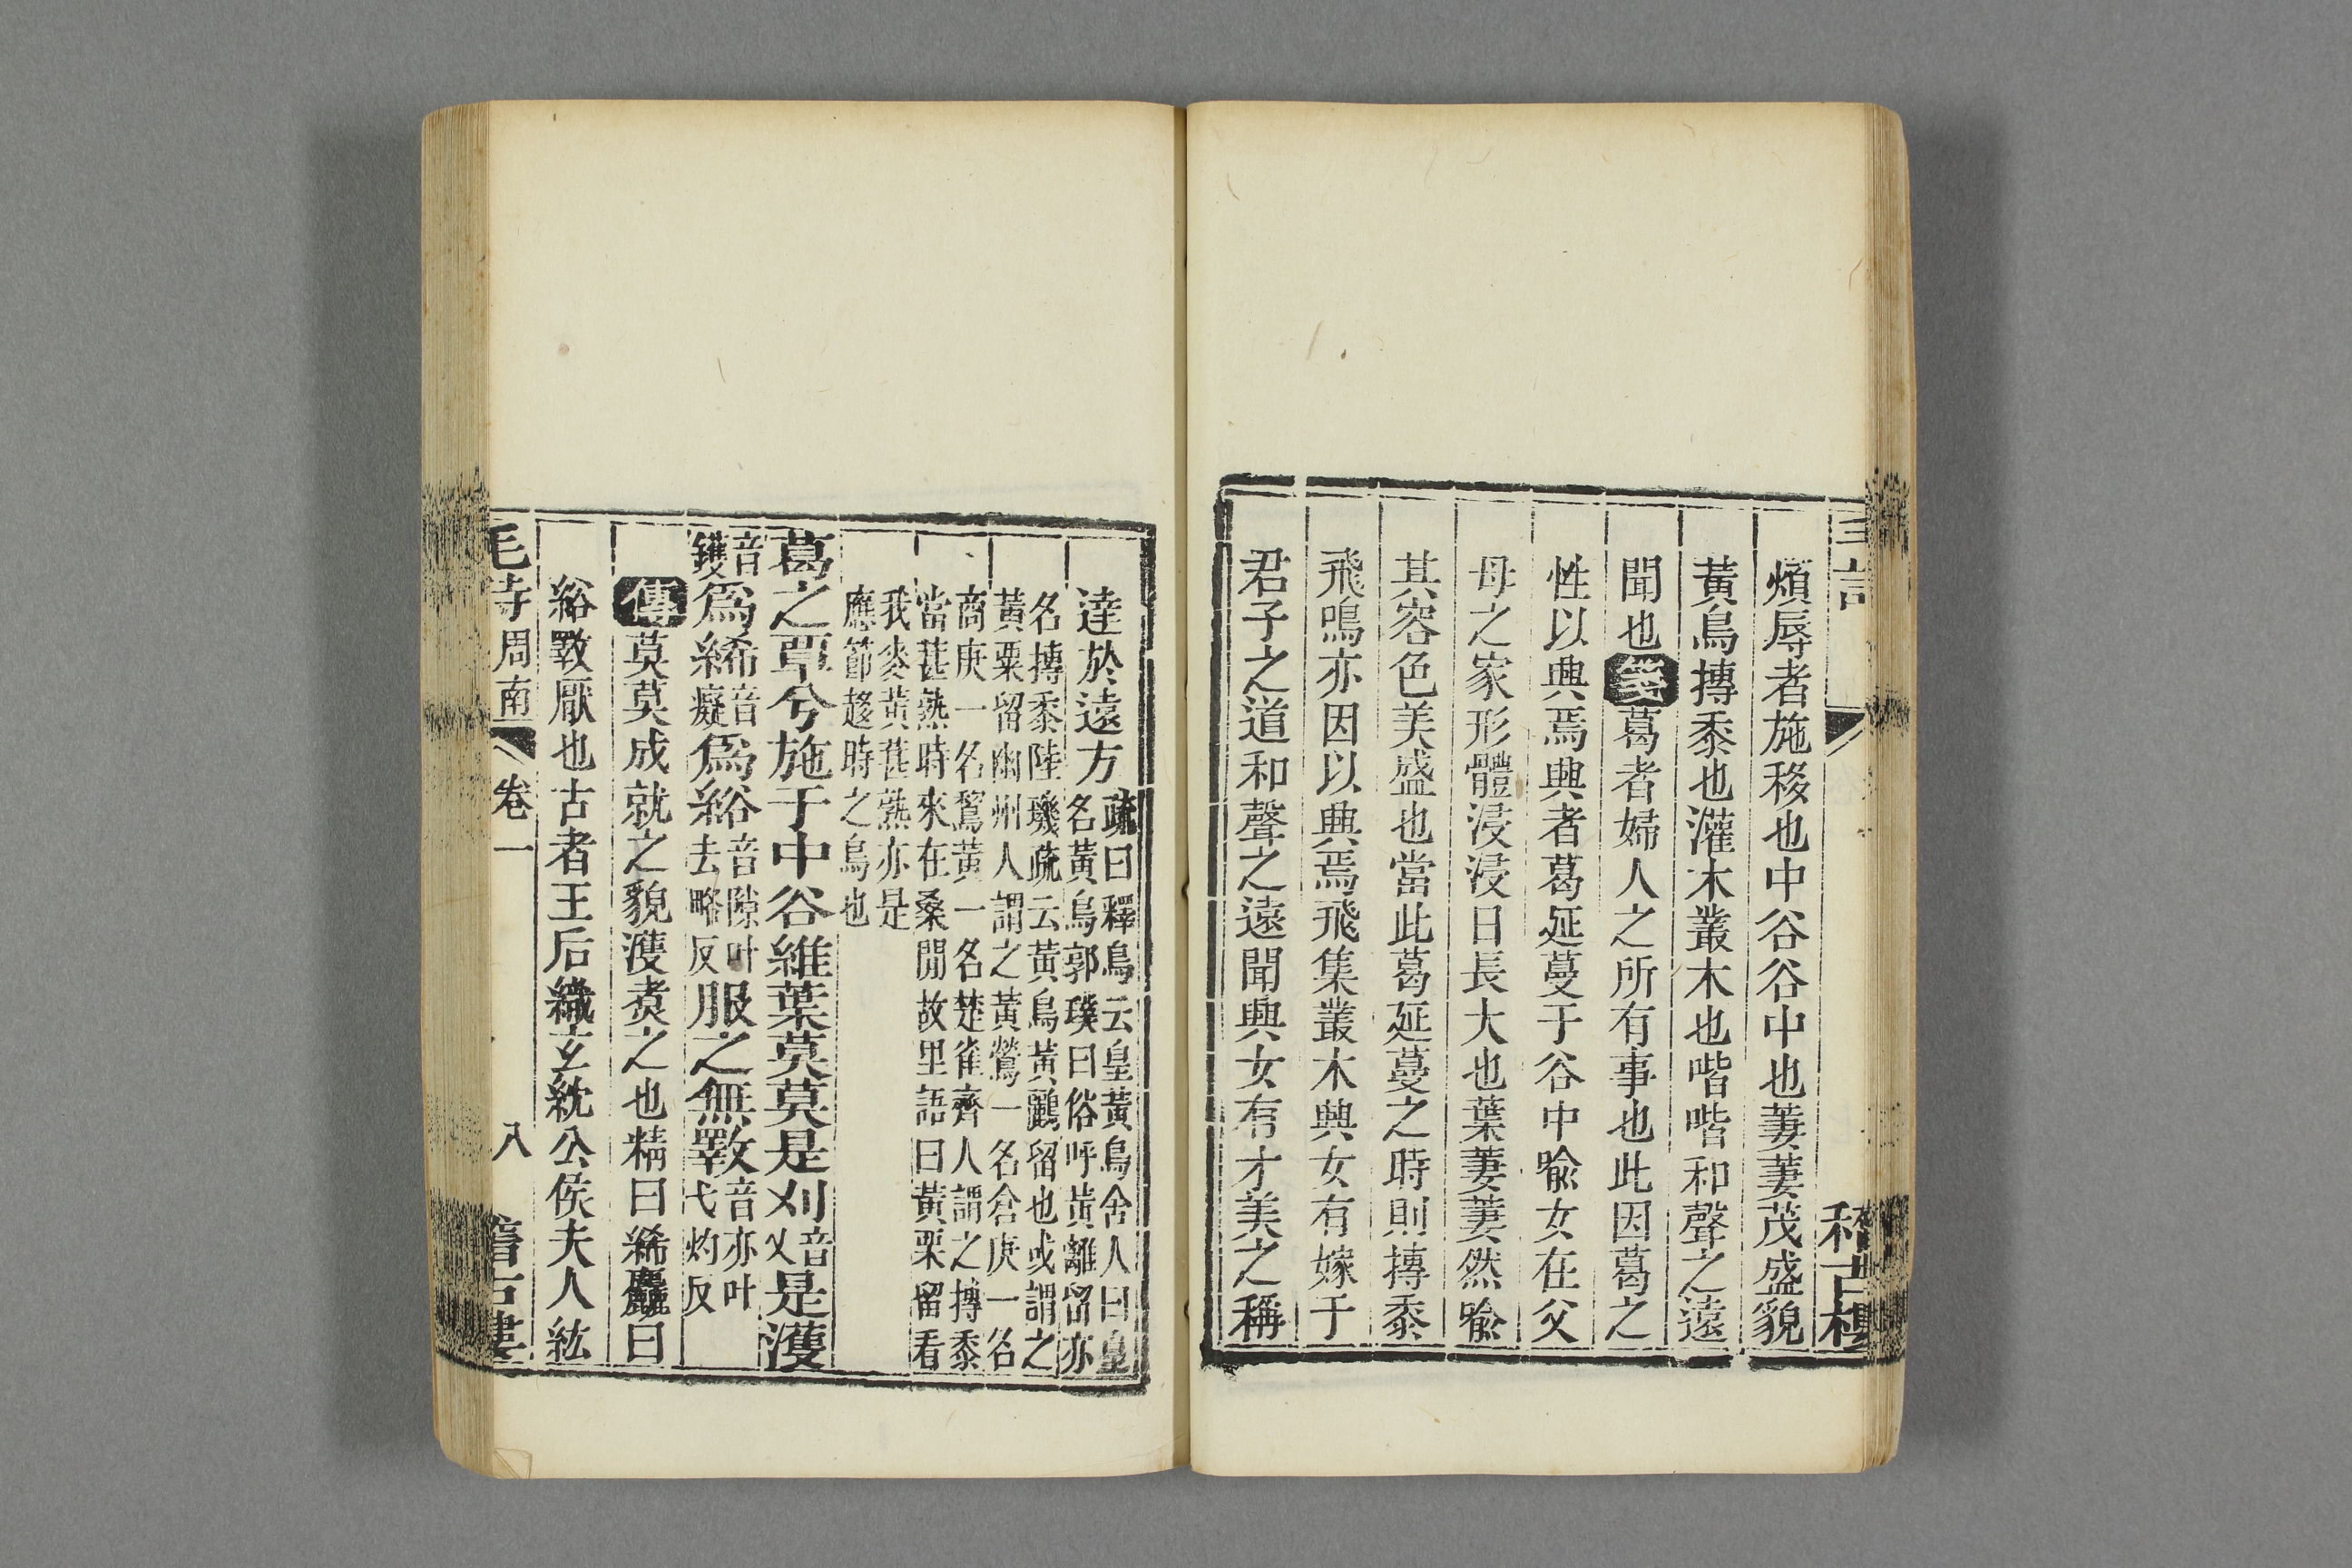 煩辱者施移也中谷谷中也萋萋茂盛貌
黃鳥摶黍也灌木叢木也喈喈和聲之遠
聞也箋葛者婦人之所有事也此因葛之
性以興焉興者葛延蔓于谷中喩女在父
母之家形體浸浸日長大也葉萋萋然喩
其容色美盛也當此葛延蔓之時則摶黍
飛鳴亦因以興焉飛集叢木興女有嫁于
君子之道和聲之遠聞興女有才美之稱
達於遠方
疏曰釋鳥云皇黃鳥舍人曰皇
名黃鳥郭璞曰俗呼黃離留亦
名摶黍陸璣疏云黃鳥黃鸝留也或謂之
黃栗留幽州人謂之黃鶯一名倉庚一名
商庚一名鵹黃一名楚雀齊人謂之摶黍
當葚熟時來在桑閒故里語曰黃栗留看
我麥黃葚熟亦是
應節趍時之鳥也
葛之覃兮施于中谷維葉莫莫是刈音乂是濩
音鑊爲絺音癡爲綌音隙叶去略反服之無斁音亦叶弋灼反
傳莫莫成就之貌濩煑之也精曰絺麤曰
綌斁厭也古者王后織玄紞公侯夫人紘
毛詩周南 卷一 八